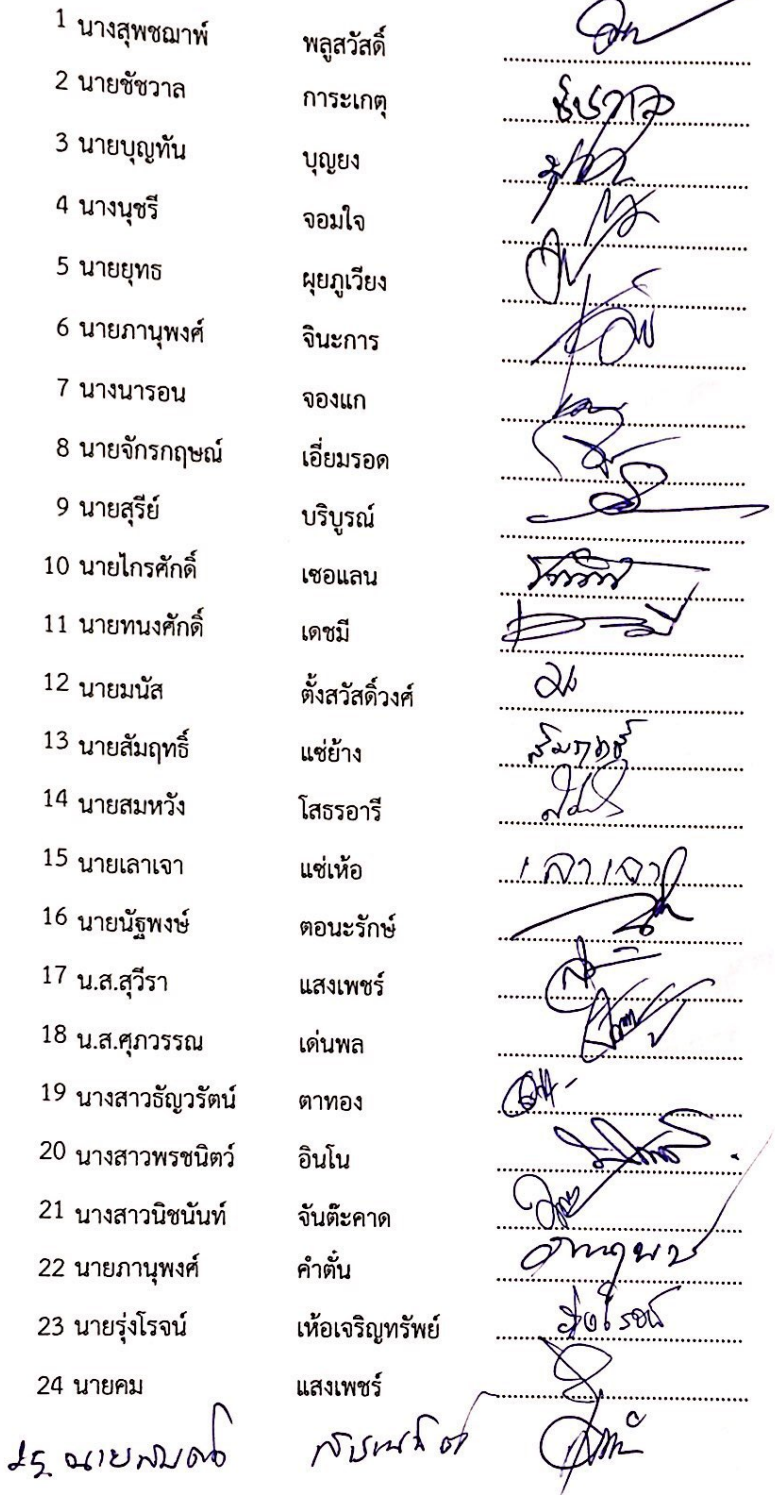 1 นางสุพชฌาพ์ พลูสวัสดิ์
2 นายชัชวาล การะเกตุ ชัชวาล
3 นายบุญทัน บุญยง
4 นางนุชรี จอมใจ
5 นายยุทธ ผุยภูเวียง
6 นายภานุพงศ์ จินะการ
7 นางนารอน จองแก
8 นายจักรกฤษณ์ เอี่ยมรอด
9 นายสุรีย์ บริบูรณ์
10 นายไกรศักดิ์ เซอแลน
11 นายทนงศักดิ์ เดชมี
12 นายมนัส ตั้งสวัสดิ์วงศ์
13 นายสัมฤทธิ์ แซ่ย้าง สัมฤทธิ์
14 นายสมหวัง โสธรอารี
15 นายเลาเจา แซ่เห้อ เลาเจา
16 นายนัฐพงษ์ ตอนะรักษ์
17 น.ส.สุวีรา แสงเพชร์
18 น.ส.ศุภวรรณ เด่นพล
19 นางสาวธัญวรัตน์ ตาทอง
20 นางสาวพรชนิตว์ อินโน
21 นางสาวนิชนันท์ จันต๊ะคาด
22 นายภานุพงศ์ คำตั๋น
23 นายรุ่งโรจน์ เห้อเจริญทรัพย์ รุ่งโรจน์
24 นายคม แสงเพชร์
25 นาย